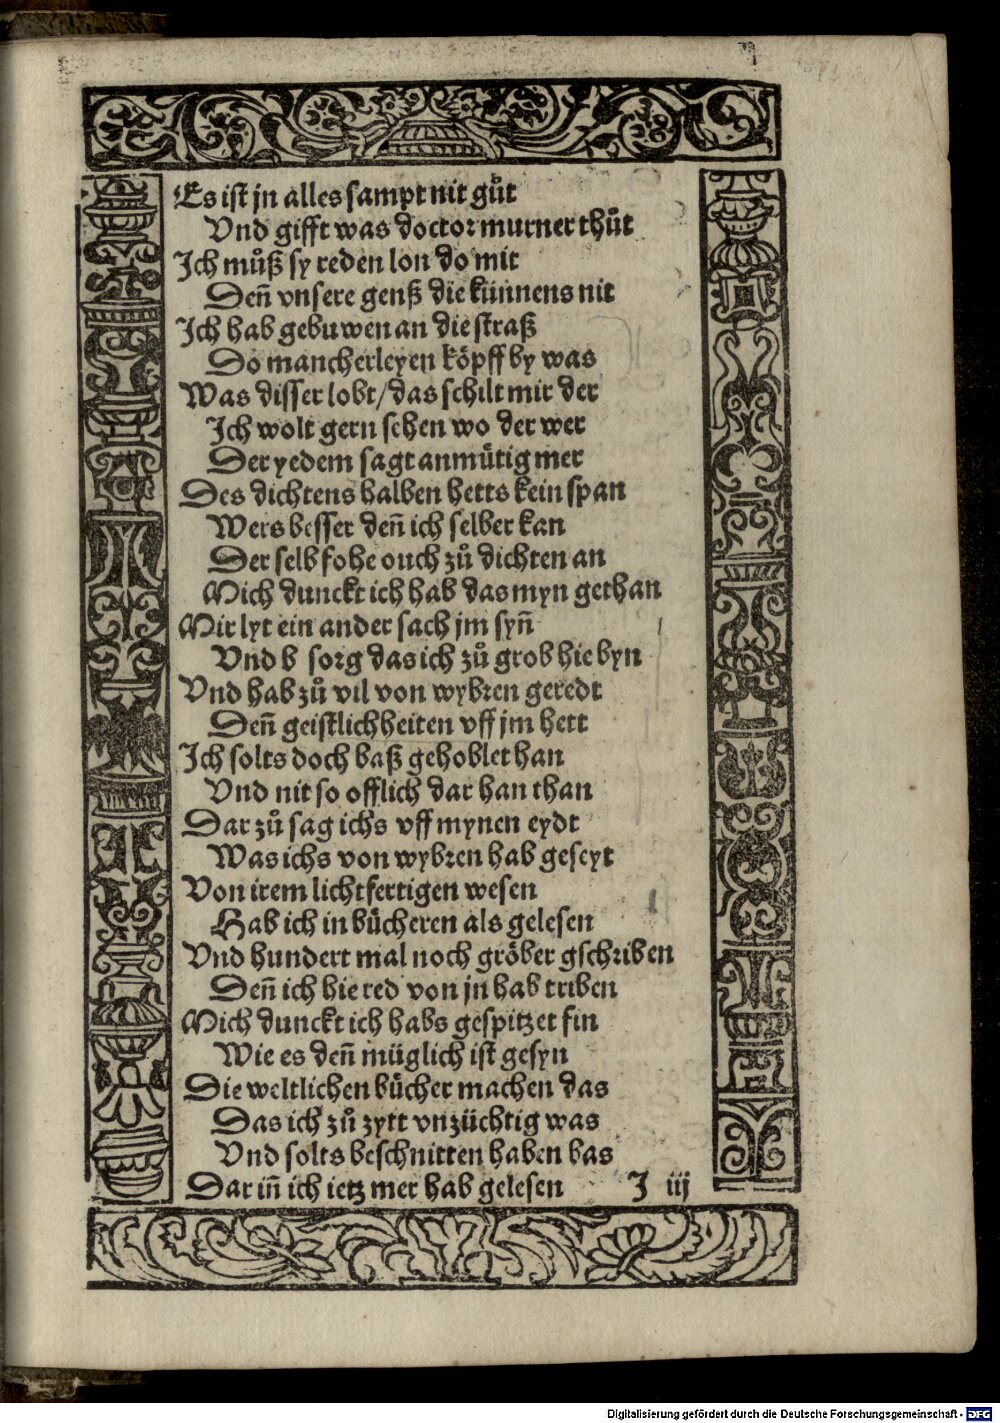 Es ist jn alles sampt nit gůt
Vnd gifft was doctor murner thůt
Ich můß sy reden lon do mit
Deñ vnsere genß die künnens nit
Ich hab gebuwen an die straß
Do mancherleyen köpff by was
Was disser lobt/das schilt mir der
Ich wolt gern sehen wo der wer
Der yedem sagt anmütig mer
Des dichtens halben hetts kein span
Wers besser deñ ich selber kan
Der selb fohe ouch zů dichten an
Mich dunckt ich hab das myn gethan
Mir lyt ein ander sach jm syñ
Vnd b sorg das ich zů grob hie byn
Vnd hab zů vil von wybren geredt
Deñ geistlichheiten vff jm hett
Ich solts doch baß gehoblet han
Vnd nit so offlich dar han than
Dar zů sag ichs vff mynen eydt
Was ichs von wybren hab geseyt
Von irem lichtfertigen wesen
Hab ich in bücheren als gelesen
Vnd hundert mal noch gröber gschriben
Deñ ich hie red von jn hab triben
Mich dunckt ich habs gespitzet fin
Wie es deñ müglich ist gesyn
Die weltlichen bücher machen das
Das ich zů zytt vnzüchtig was
Vnd solts beschnitten haben bas
Dar iñ ich ietz mer hab gelesen I iij
Digitalisierung gefördert durch die Deutsche Forschungsgemeinschaft - DFG